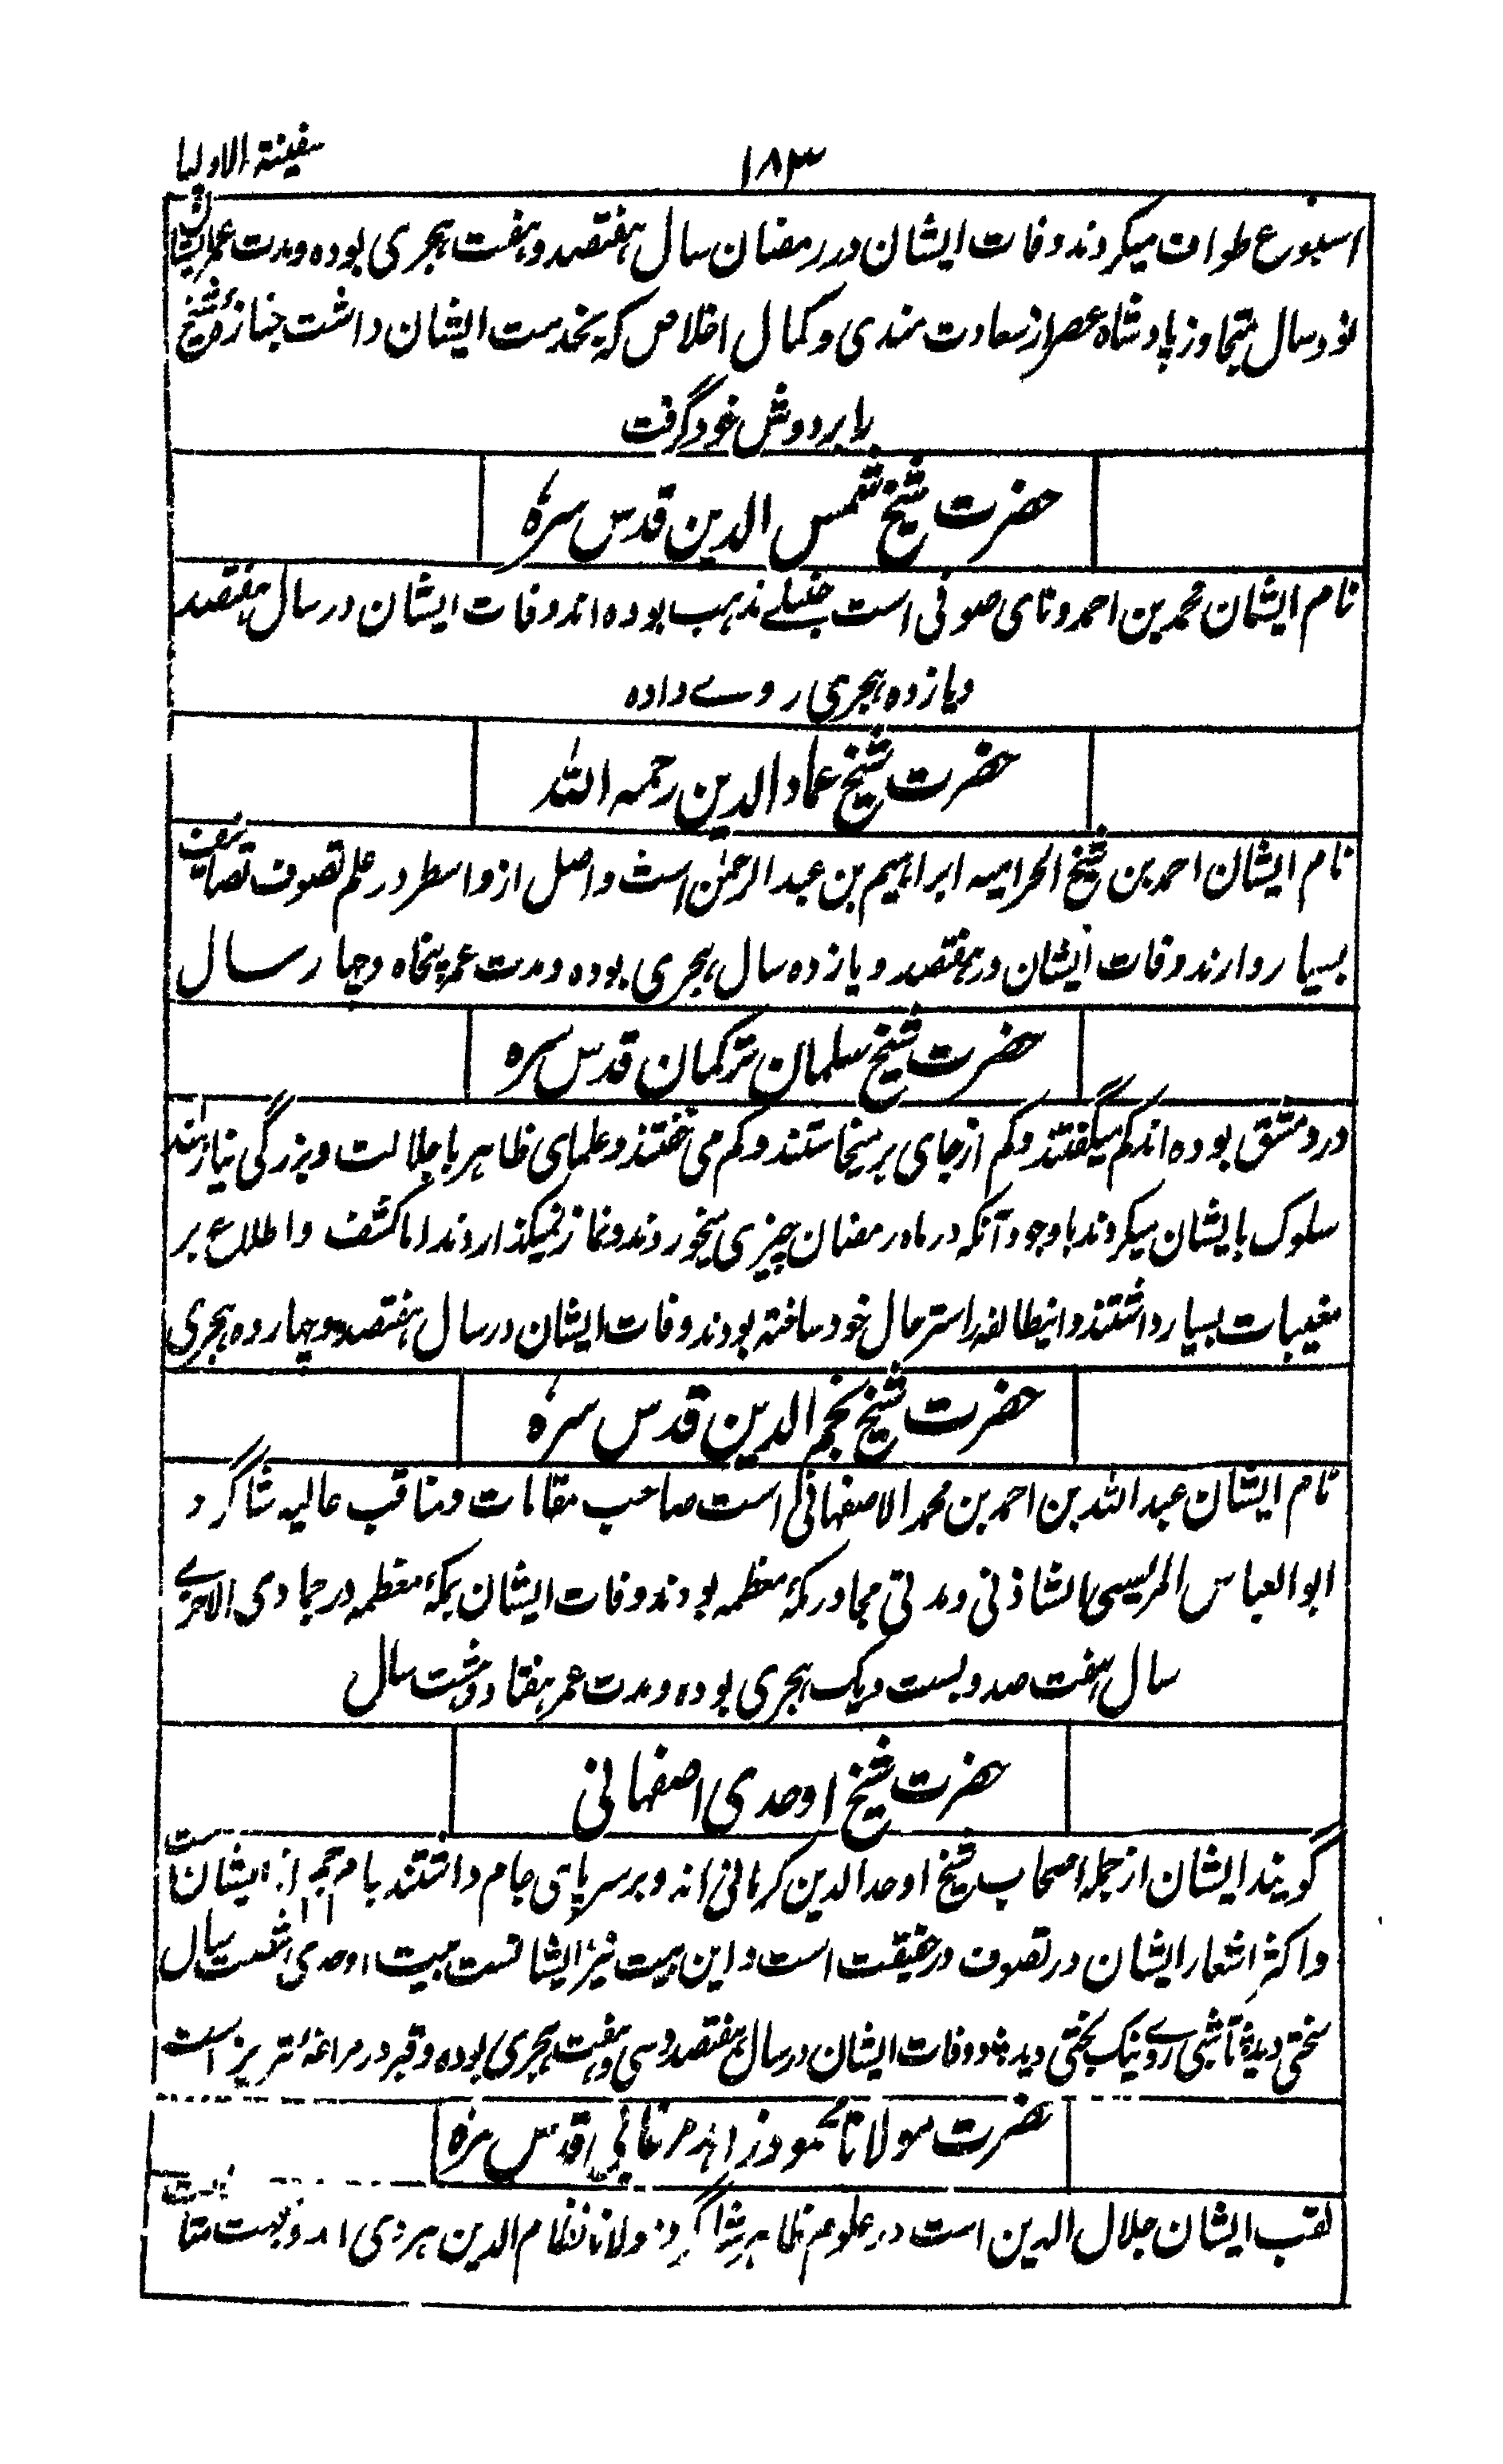 سفینۃ الاولیا
۱۸۳
اسبوع طواف میکردند وفات ایشان در رمضان سال ہفتصد و ہفت ہجری بودہ ومدت عمر ایشان
نود سال متجاوز پادشاہ عصر از سعادت مندی و کمال اخلاص کہ بخدمت ایشان داشت جنازۂ شیخ
را بر دوش خود گرفت
حضرت شیخ شمس الدین قدس سرہ
نام ایشان محمد بن احمد و نامی صوفی است حنبلے مذہب بودہ اند وفات ایشان در سال ہفتصد
ویازدہ ہجری روے دادہ
حضرت شیخ عماد الدین رحمہ اللہ
نام ایشان احمد بن شیخ الحرامیہ ابراہیم بن عبد الرحمٰن است واصل از واسط در علم تصوف تصانیف
بسیار دارند وفات ایشان در ہفتصد و یازدہ سال ہجری بودہ ومدت عمر پنجاہ وچہار سال
حضرت شیخ سلمان ترکمان قدس سرہ
در دمشق بودہ اند کم میگفتند وکم از جای بر میخاستند وکم می خفتند وعلمای ظاہر با جلالت وبزرگی نیازمند
سلوک بایشان میکردند باوجود آنکہ در ماہ رمضان چیزی میخوردند ونماز نمیگذاردند اما کشف واطلاع بر
مغیبات بسیار داشتند واینطائفہ را ستر حال خود ساختہ بودند وفات ایشان در سال ہفتصد وچہاردہ ہجری
حضرت شیخ نجم الدین قدس سرہ
نام ایشان عبد اللہ بن احمد بن محمد الاصفہانی است صاحب مقامات ومناقب عالیہ شاگرد
ابو العباس المریسی الشاذلی ومدتی مجاور مکۂ معظمہ بودند وفات ایشان بمکۂ معظمہ در جمادی الاخری
سال ہفت صد وبست ویک ہجری بودہ ومدت عمر ہفتاد وہشت سال
حضرت شیخ اوحدی اصفہانی
گویند ایشان از جملہ اصحاب شیخ اوحد الدین کرمانی اند و بر سرپای جام داشتند از ایشان است
واکثر اشعار ایشان در تصوف در حقیقت است واین بیت نیز ایشانست بیت اوحدی شست سال
سختی دیدہ تا شبی روے نیک بختی دید وفات ایشان در سال ہفتصد وسی وہفت ہجری بودہ وقبر در مراغۂ تبریز است
حضرت مولانا محمود زاہد مرغابی قدس سرہ
لقب ایشان جلال الدین است در علوم ظاہر شاگرد مولانا نظام الدین ہروی اند